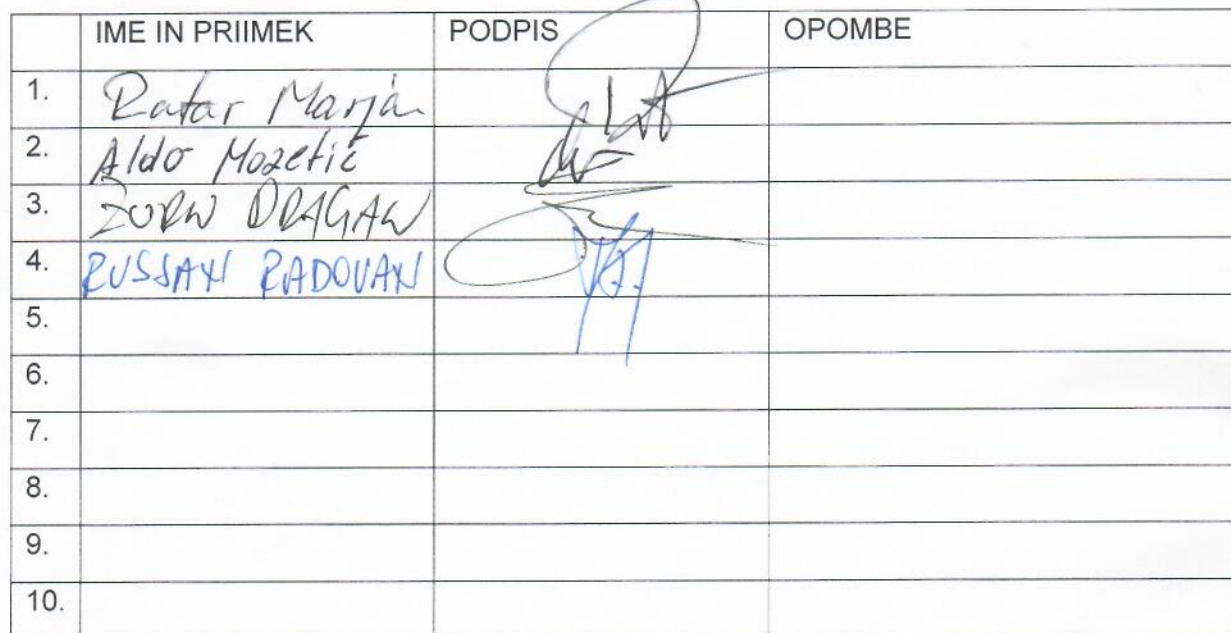 IME IN PRIIMEK PODPIS OPOMBE
1. Ratar Marjan
2. Aldo Mozetič
3. ZORN DRAGAN
4. RUSSAN RADOVAN
5.
6.
7.
8.
9.
10.